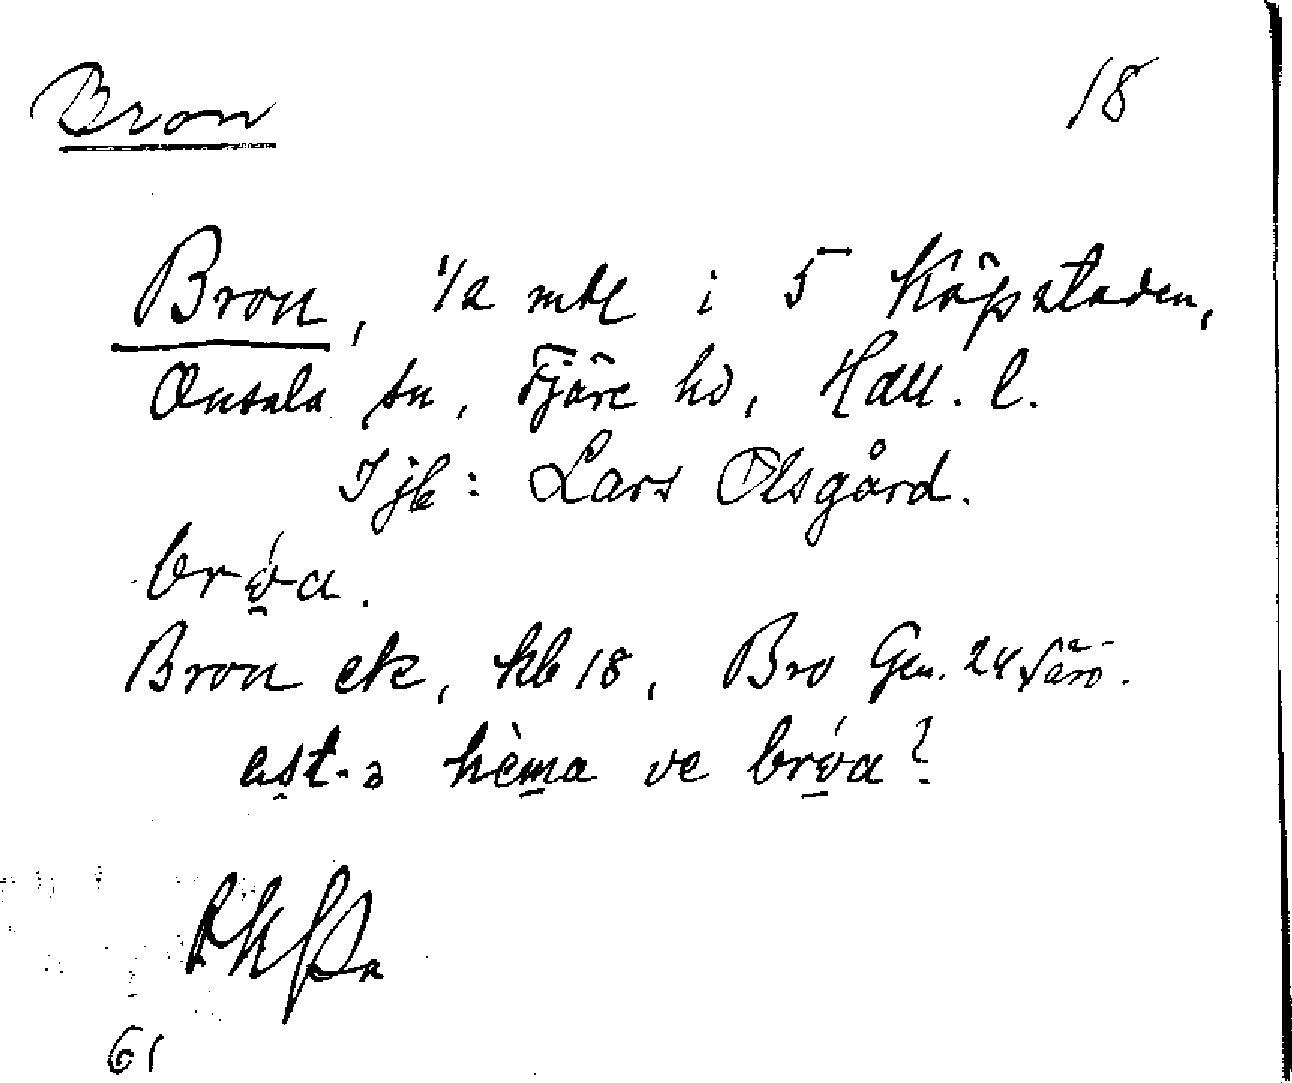 Bron 18
Bron, 1/2 mtl i 5 Köpstaden,
Onsala sn, Fjäre hd, Hall. l.
I jb: Lars Olsgård.
brόa.
Bron ek, kb 18, Bro Gen. 24 Särö.
hèma ve brόa?
61